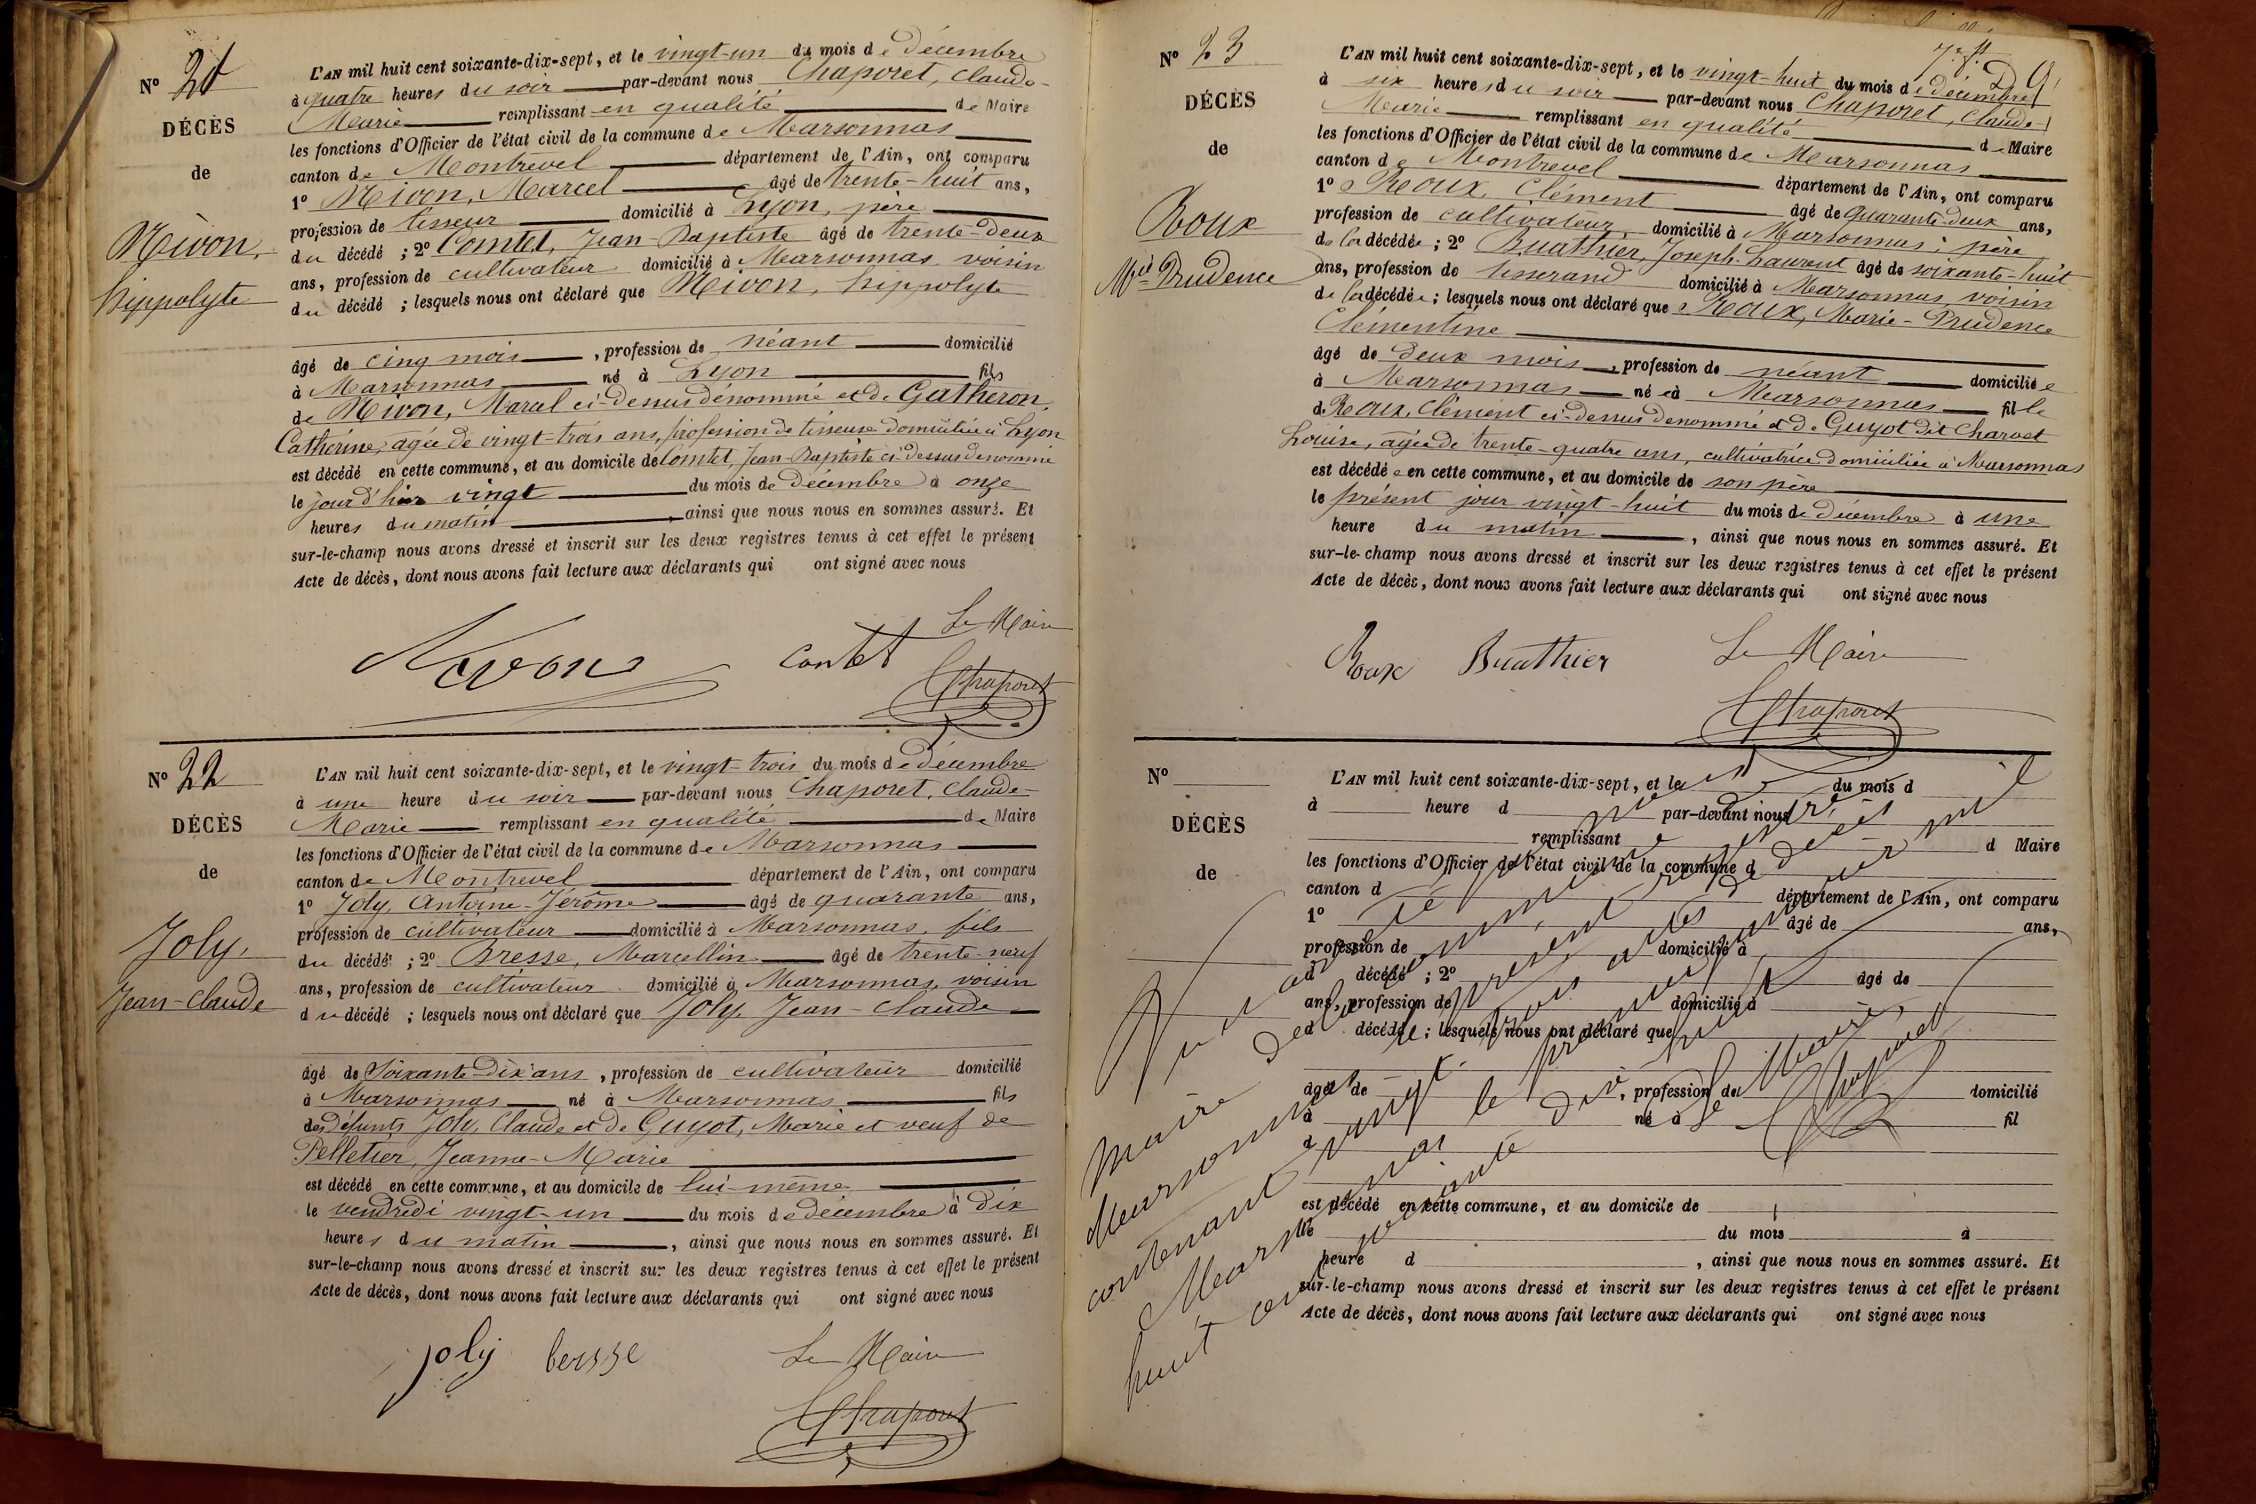 N° 21
DÉCÈS
de
Nivon,
hippolyte
L'AN mil huit cent soixante-dix-sept, et le vingt-un du mois de décembre
à quatre heures du soir par-devant nous Chaporet, Claude-
Marie remplissant en qualité de Maire
les fonctions d'Officier de l'état civil de la commune de Marsonnas
canton de Montrevel département de l'Ain, ont comparu
1° Nivon, Marcel âgé de trente-huit ans,
profession de tisseur domicilié à Lyon, père
du décédé ; 2° Comtet, Jean-Baptiste âgé de trente-deux
ans, profession de cultivateur domicilié à Marsonnas voisin
du décédé ; lesquels nous ont déclaré que Nivon, hippolyte
âgé de cinq mois , profession de néant domicilié
à Marsonnas né à Lyon fils
de Nivon, Marcel ci-dessus dénommé et de Gatheron,
Catherine, agée de vingt-trois ans, profession de tisseuse domiciliée à Lyon
est décédé en cette commune, et au domicile de Comtet, Jean-Baptiste ci-dessus dénommé
le jour d'hier vingt du mois de décembre à onze
heures du matin , ainsi que nous nous en sommes assuré. Et
sur-le-champ nous avons dressé et inscrit sur les deux registres tenus à cet effet le présent
Acte de décès, dont nous avons fait lecture aux déclarants qui ont signé avec nous
Le Maire
Nivon contet
Chaporet
N° 22
DÉCÈS
de
Joly,
Jean-Claude
L'AN mil huit cent soixante-dix-sept, et le vingt-trois du mois de décembre
à une heure du soir par-devant nous Chaporet, Claude-
Marie remplissant en qualité de Maire
les fonctions d'Officier de l'état civil de la commune de Marsonnas
canton de Montrevel département de l'Ain, ont comparu
1° Joly, Antoine-Jérôme âgé de quarante ans,
profession de cultivateur domicilié à Marsonnas, fils
du décédé ; 2° Bresse, Marcellin âgé de trente-neuf
ans, profession de cultivateur domicilié à Marsonnas, voisin
du décédé ; lesquels nous ont déclaré que Joly, Jean-Claude
âgé de Soixante-dix ans , profession de cultivateur domicilié
à Marsonnas né à Marsonnas fils
des défunts Joly, Claude et de Guyot, Marie et veuf de
Pelletier, Jeanne-Marie
est décédé en cette commune, et au domicile de lui-même
le vendredi vingt-un du mois de décembre à dix
heures du matin , ainsi que nous nous en sommes assuré. Et
sur-le-champ nous avons dressé et inscrit sur les deux registres tenus à cet effet le présent
Acte de décès, dont nous avons fait lecture aux déclarants qui ont signé avec nous
joly bersse Le Maire
Chaporet
N° 23
DÉCÈS
de
Roux
Mie Prudence
L'AN mil huit cent soixante-dix-sept, et le vingt-huit du mois de décembre
à six heures du soir par-devant nous Chaporet, Claude-
Marie remplissant en qualité de Maire
les fonctions d'Officier de l'état civil de la commune de Marsonnas
canton de Montrevel département de l'Ain, ont comparu
1° Roux, Clément âgé de quarante-deux ans,
profession de cultivateur, domicilié à Marsonnas, père
de la décédée ; 2° Buathier, Joseph-Laurent âgé de soixante-huit
ans, profession de tisserand domicilié à Marsonnas voisin
de la décédée ; lesquels nous ont déclaré que Roux, Marie-Prudence
Clémentine
âgé de deux mois , profession de néant domiciliée
à Marsonnas née à Marsonnas fille
de Roux, Clément ci-dessus dénommé et de Guyot dit Charvet
Louise, agée de trente-quatre ans, cultivatrice domiciliée à Marsonnas
est décédée en cette commune, et au domicile de son père
le présent jour vingt-huit du mois de décembre à une
heure du matin , ainsi que nous nous en sommes assuré. Et
sur-le-champ nous avons dressé et inscrit sur les deux registres tenus à cet effet le présent
Acte de décès, dont nous avons fait lecture aux déclarants qui ont signé avec nous
Roux Buathier Le Maire
Chaporet
N°
DÉCÈS
de
L'AN mil huit cent soixante-dix-sept, et le du mois d
à heure d par-devant nous
remplissant d Maire
les fonctions d'Officier de l'état civil de la commune d
canton d département de l'Ain, ont comparu
1° âgé de ans,
profession de domicilié à
d décédé ; 2° âgé de
ans, profession de domicilié à
d décédé ; lesquels nous ont déclaré que
âgé de , profession de domicilié
à né à fil
d
est décédé en cette commune, et au domicile de
le du mois à
heure d , ainsi que nous nous en sommes assuré. Et
sur-le-champ nous avons dressé et inscrit sur les deux registres tenus à cet effet le présent
Acte de décès, dont nous avons fait lecture aux déclarants qui ont signé avec nous
Vu et arrêté par nous
Maire de la commune de
Marsonnas le présent registre
contenant vingt-trois actes de décès
Marsonnas le premier janvier mil
huit cent soixante dix huit
Le Maire,
Chaporet